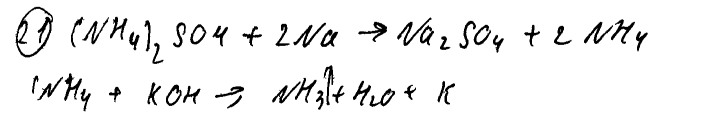 21 (NH4)2 SO4 + 2Na → Na2SO4 + 2 NH4
NH4 + KOH → NH3↑ + H2O + K